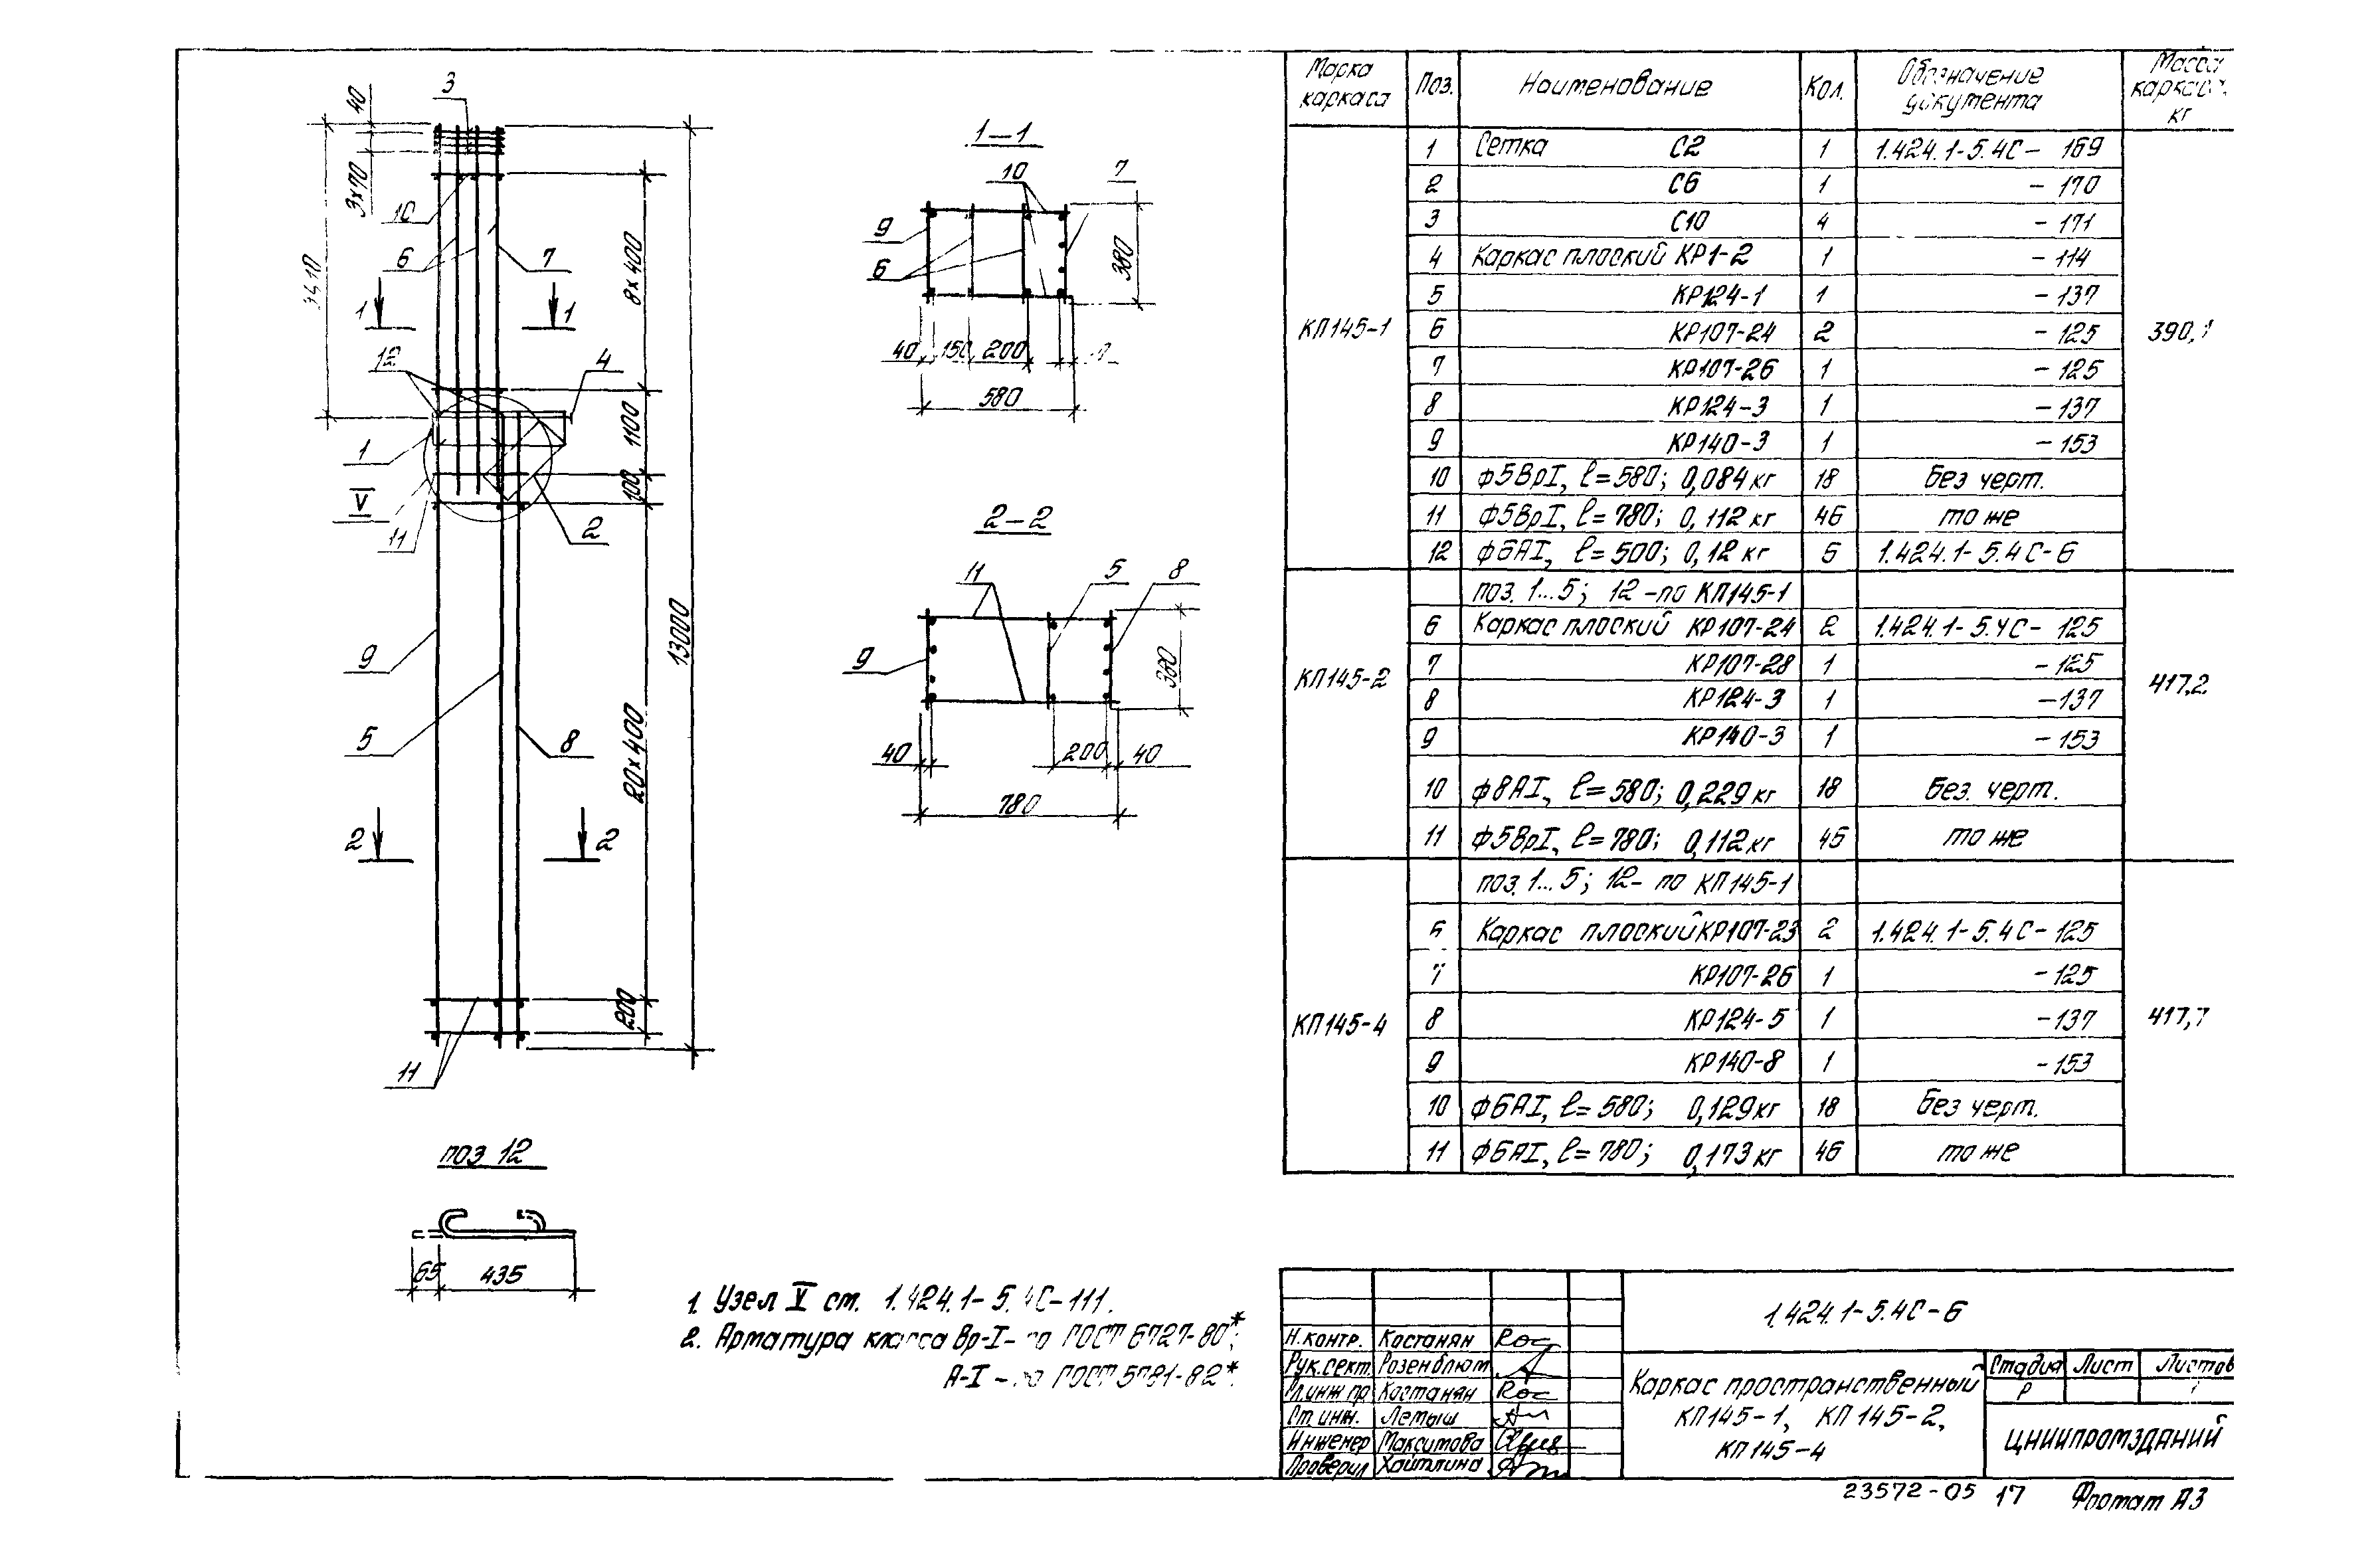 40
3
3×70
3410
10
6
7
8×400
1
1
12
4
1100
1
100
V
11
2
9
13000
5
8
20×400
2
2
200
11
поз 12
65
435
1–1
10
7
9
6
380
40
150
200
580
2–2
11
5
8
9
380
40
200
40
780
1. Узел V см. 1.424.1-5.4С-111.
2. Арматура класса Вр-I- по ГОСТ 6727-80*;
А-I - по ГОСТ 5781-82*.
Марка каркаса | Поз. | Наименование | Кол. | Обозначение документа | Масса каркаса, кг
КП145-1 | 390,1
1 Сетка С2 1 1.424.1-5.4С- 169
2 С6 1 - 170
3 С10 4 - 171
4 Каркас плоский КР1-2 1 - 114
5 КР124-1 1 - 137
6 КР107-24 2 - 125
7 КР107-26 1 - 125
8 КР124-3 1 - 137
9 КР140-3 1 - 153
10 ф5ВрI, l=580; 0,084 кг 18 Без черт.
11 ф5ВрI, l=780; 0,112 кг 46 то же
12 ф6АI, l=500; 0,12 кг 1.424.1-5.4С-6
КП145-2 | 417,2
поз. 1...5; 12 -по КП145-1
6 Каркас плоский КР107-24 2 1.424.1-5.4С- 125
7 КР107-28 1 - 125
8 КР124-3 1 - 137
9 КР140-3 1 - 153
10 ф8АI, l=580; 0,229 кг 18 Без. черт.
11 ф5ВрI, l=780; 0,112 кг то же
КП145-4 | 417,7
поз. 1...5; 12- по КП145-1
6 Каркас плоский КР107-23 2 1.424.1-5.4С- 125
7 КР107-26 1 - 125
8 КР124-5 1 - 137
9 КР140-8 1 - 153
10 ф6АI, l=580; 0,129 кг 18 Без черт.
11 ф6АI, l=780; 0,173 кг 46 то же
1.424.1-5.4С-6
Н.контр. Костанян
Рук.сект. Розенблюм
Гл.инж.пр. Костанян
Ст.инж. Лемыш
Инженер Максимова
Проверил Хаитлина
Каркас пространственный
КП145-1, КП145-2,
КП145-4
Стадия Лист Листов
Р 1
ЦНИИПРОМЗДАНИЙ
23572-05 17 Формат А3